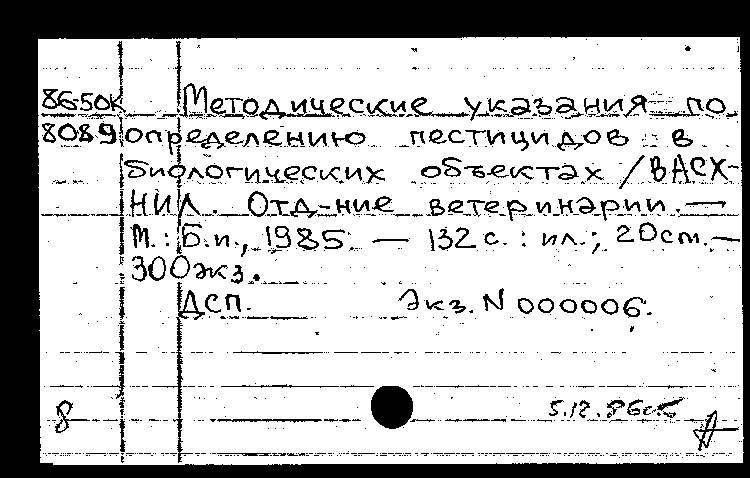 86-50к Методические указания по
8089 определению пестицидов в
биологических объектах / ВАСХ-
НИЛ. Отд-ние ветеринарии. —
М.: Б.и., 1985. — 132 с. : ил.; 20 см. —
300 экз.
ДСП. Экз. N 000006.
8 5.12.86